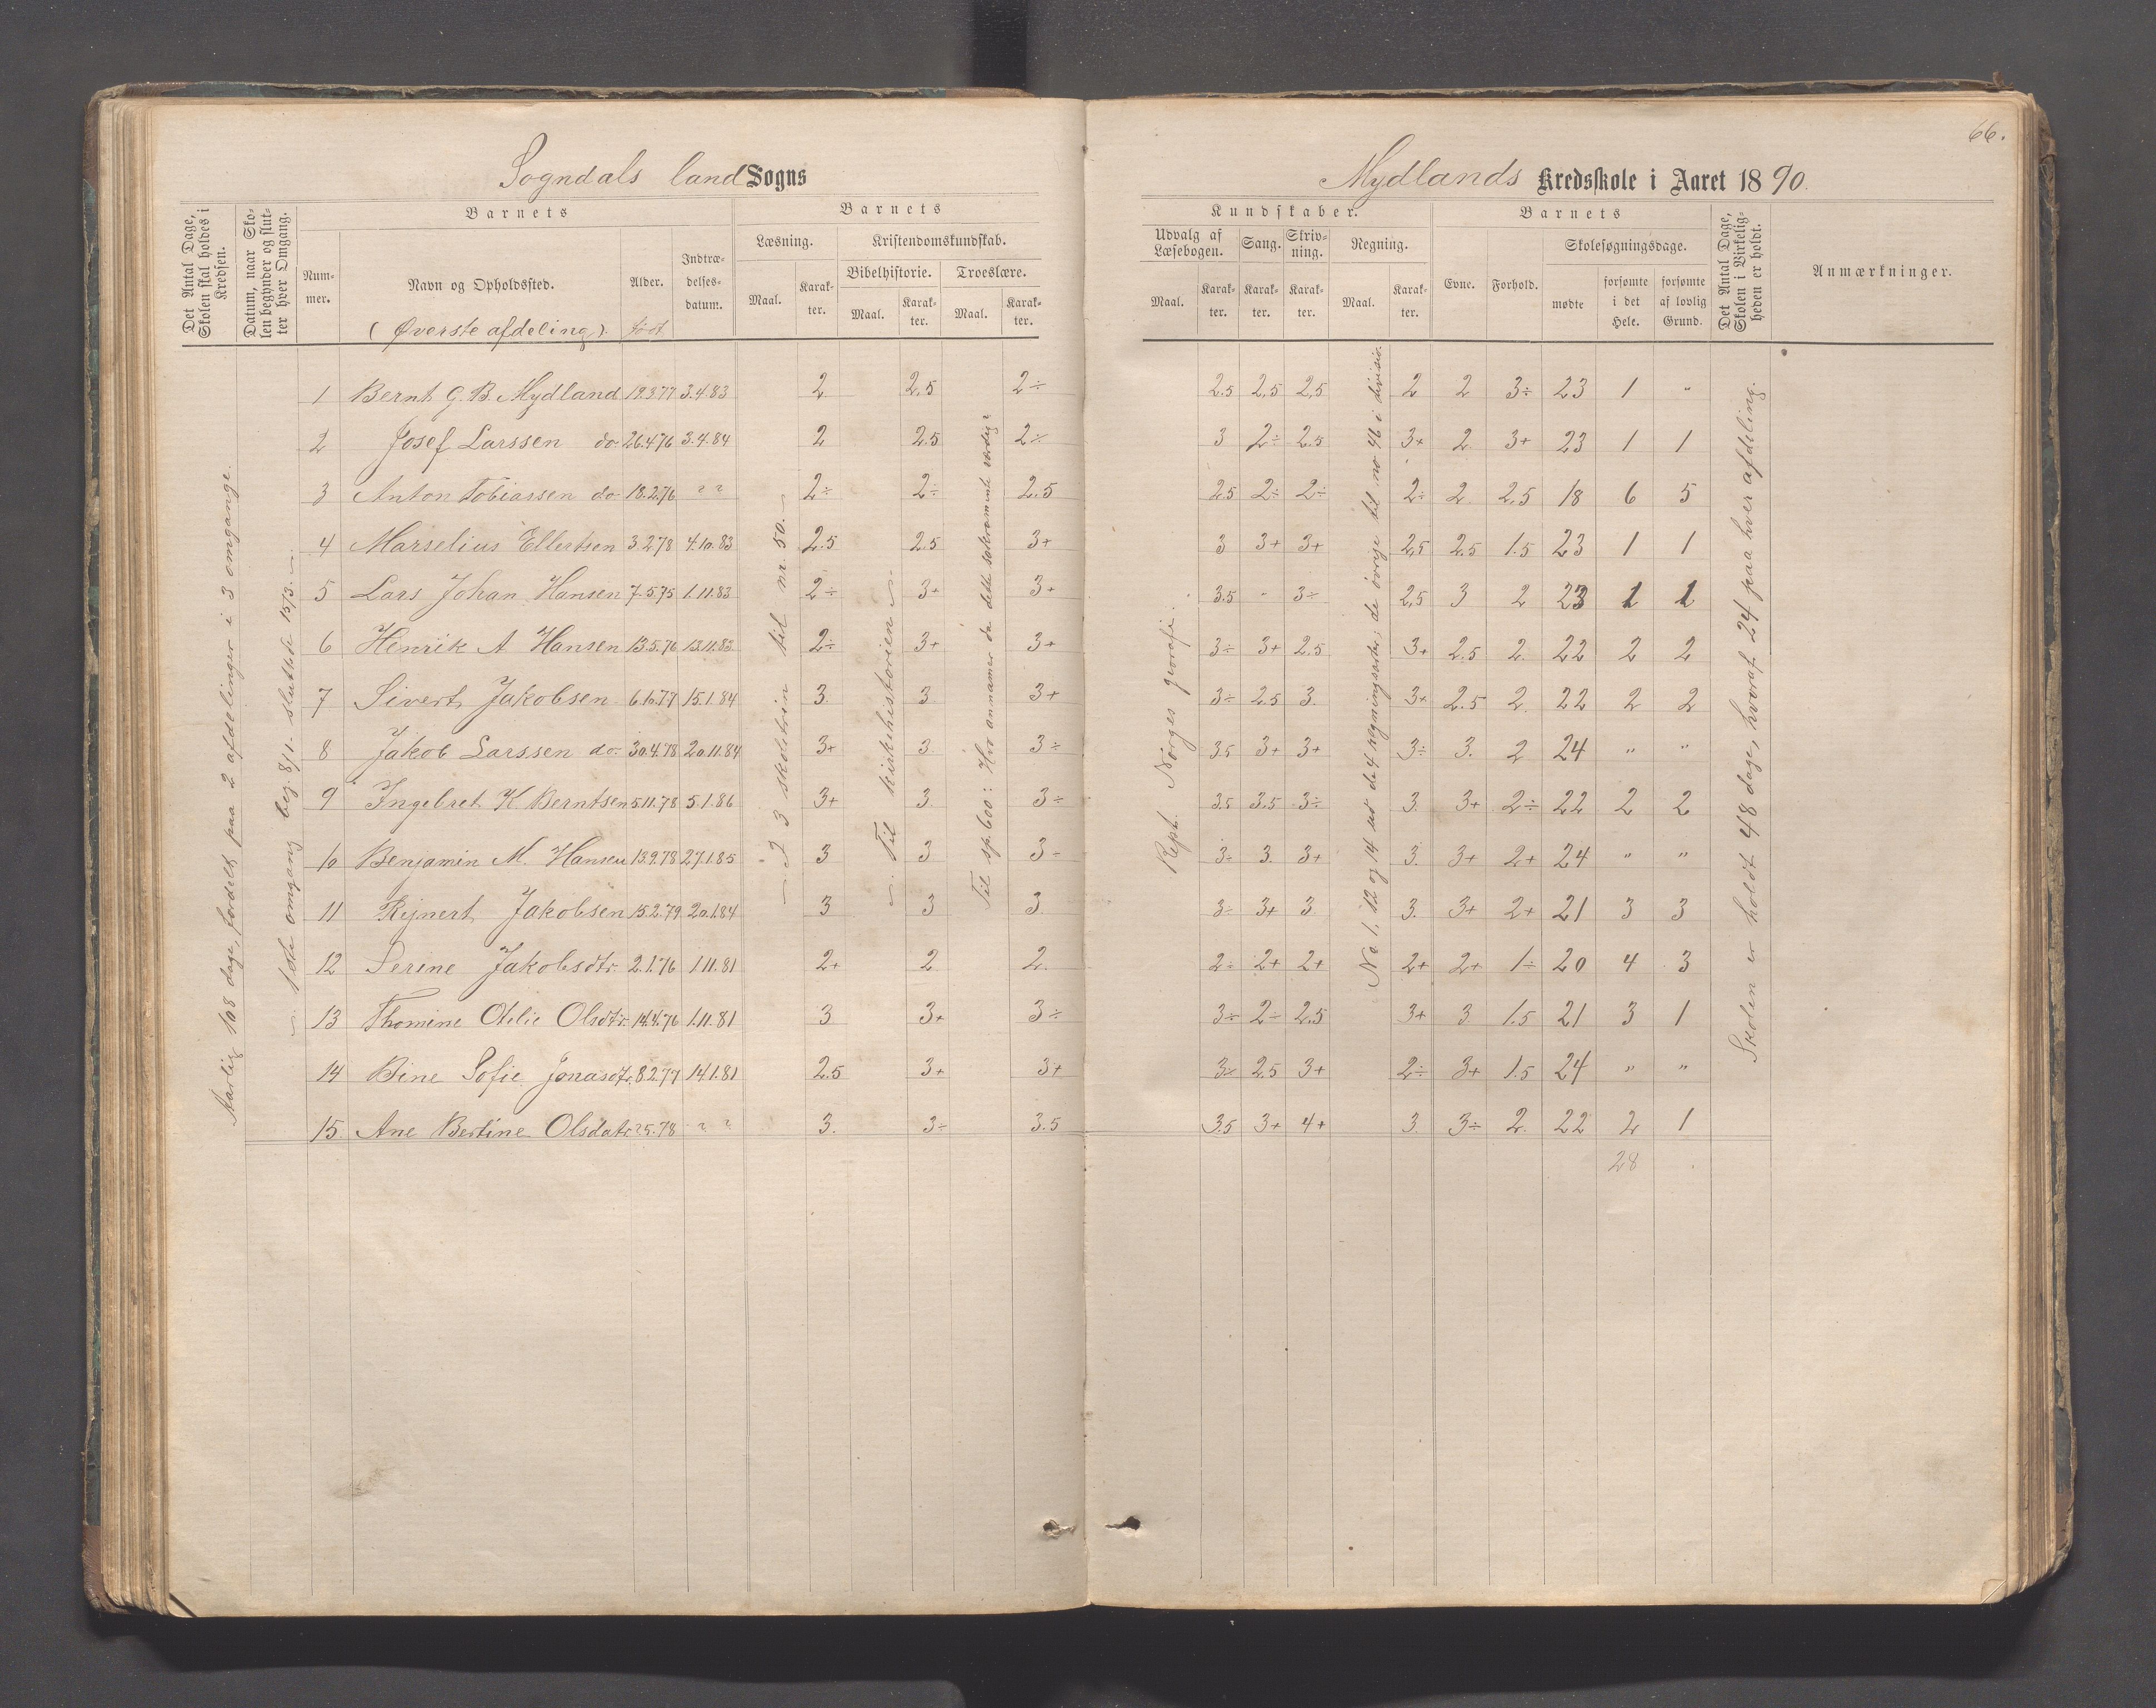 66.
Sogndals land Sogns
Mydlands Kredsskole i Aaret 1890.
Det Antal Dage, Skolen skal holdes i Kredsen.
Datum, naar Skolen begynder og slutter hver Omgang.
Barnets
Nummer.
Navn og Opholdssted.
(Øverste afdeling)
Alder.
født
Indtrædelses-datum.
Barnets
Læsning.
Maal.
Karakter.
Kristendomskundskab.
Bibelhistorie.
Maal.
Karakter.
Troeslære.
Maal.
Karakter.
Kundskaber.
Udvalg af Læsebogen.
Maal.
Karakter.
Sang.
Karakter.
Skrivning.
Karakter.
Regning.
Maal.
Karakter.
Barnets
Evne.
Forhold.
Skolesøgningsdage.
mødte
forsømte i det Hele.
forsømte af lovlig Grund.
Det Antal Dage, Skolen i Virkeligheden er holdt.
Anmærkninger.
Aarlig 108 dage, fordelt paa 2 afdelinger i 3 omgange.
1ste omgang beg. 8/1 - sluttet 15/3.
I 3 skoletrin til nr. 50.
Til kirkehistorien
Til sp. 600: Hvo annamer da dette sakramente værdig?
Rept. Norges geografi.
No 1, 12 og 14 ud de 4 regningsarter; de øvrige til no 46 i division.
Skolen er holdt 48 dage, hvoraf 24 paa hver afdeling.
1 Bernt G. B. Mydland 19.3.77 3.4.83 2 2,5 2÷ 2.5 2,5 2,5 2 2 3÷ 23 1 "
2 Josef Larssen do 26.4.76 3.4.84 2 2.5 2÷ 3 2÷ 2.5 3+ 2. 3+ 23 1 1
3 Anton Tobiassen do 18.2.76 ? ? 2÷ 2÷ 2.5 2.5 2÷ 2÷ 2÷ 2. 2,5 18 6 5
4 Marselius Ellertsen 3.2.78 4.10.83 2.5 2.5 3+ 3 3+ 3+ 2,5 2.5 1.5 23 1 1
5 Lars Johan Hansen 7.5.75 1.11.83 2÷ 3+ 3+ 3.5 - 3÷ 2,5 3 2 23 1 1
6 Henrik A Hansen 13.5.76 13.11.83 2÷ 3+ 3+ 3÷ 3+ 2.5 3+ 2.5 2. 22 2 2
7 Sivert Jakobsen 6.10.77 15.1.84 3. 3 3+ 3÷ 2.5 3. 3+ 2.5 2. 22 2 2
8 Jakob Larssen do 30.4.78 20.11.84 3+ 3. 3÷ 3.5 3+ 3+ 3÷ 3. 2 24 " "
9 Ingebret K Berntsen 5.11.78 5.1.86 3+ 3. 3÷ 3.5 3.5 3÷ 3. 3+ 2÷ 22 2 2
10 Benjamin M. Hansen 13.9.78 27.1.85 3 3 3÷ 3÷ 3. 3+ 3. 3+ 2+ 24 " "
11 Rejnert Jakobsen 15.2.79 20.1.84 3 3 3. 3÷ 3+ 3. 3. 3+ 2+ 21 3 3
12 Serine Jakobsdtr. 2.1.76 1.11.81 2+ 2 2. 2÷ 2+ 2+ 2+ 2+ 1÷ 20 4 3
13 Thomine Otelie Olsdtr. 14.4.76 1.11.81 3 3+ 3÷ 3÷ 2÷ 2.5 3+ 3 1.5 21 3 1
14 Bine Sofie Jonasdtr. 8.2.77 14.1.81 2.5 3+ 3+ 3÷ 2.5 3+ 2÷ 3+ 1.5 24 " "
15. Ane Bertine Olsdatr. ?.5.78 ? ? 3. 3÷ 3.5 3.5 3+ 4+ 3. 3÷ 2. 22 2 1
28